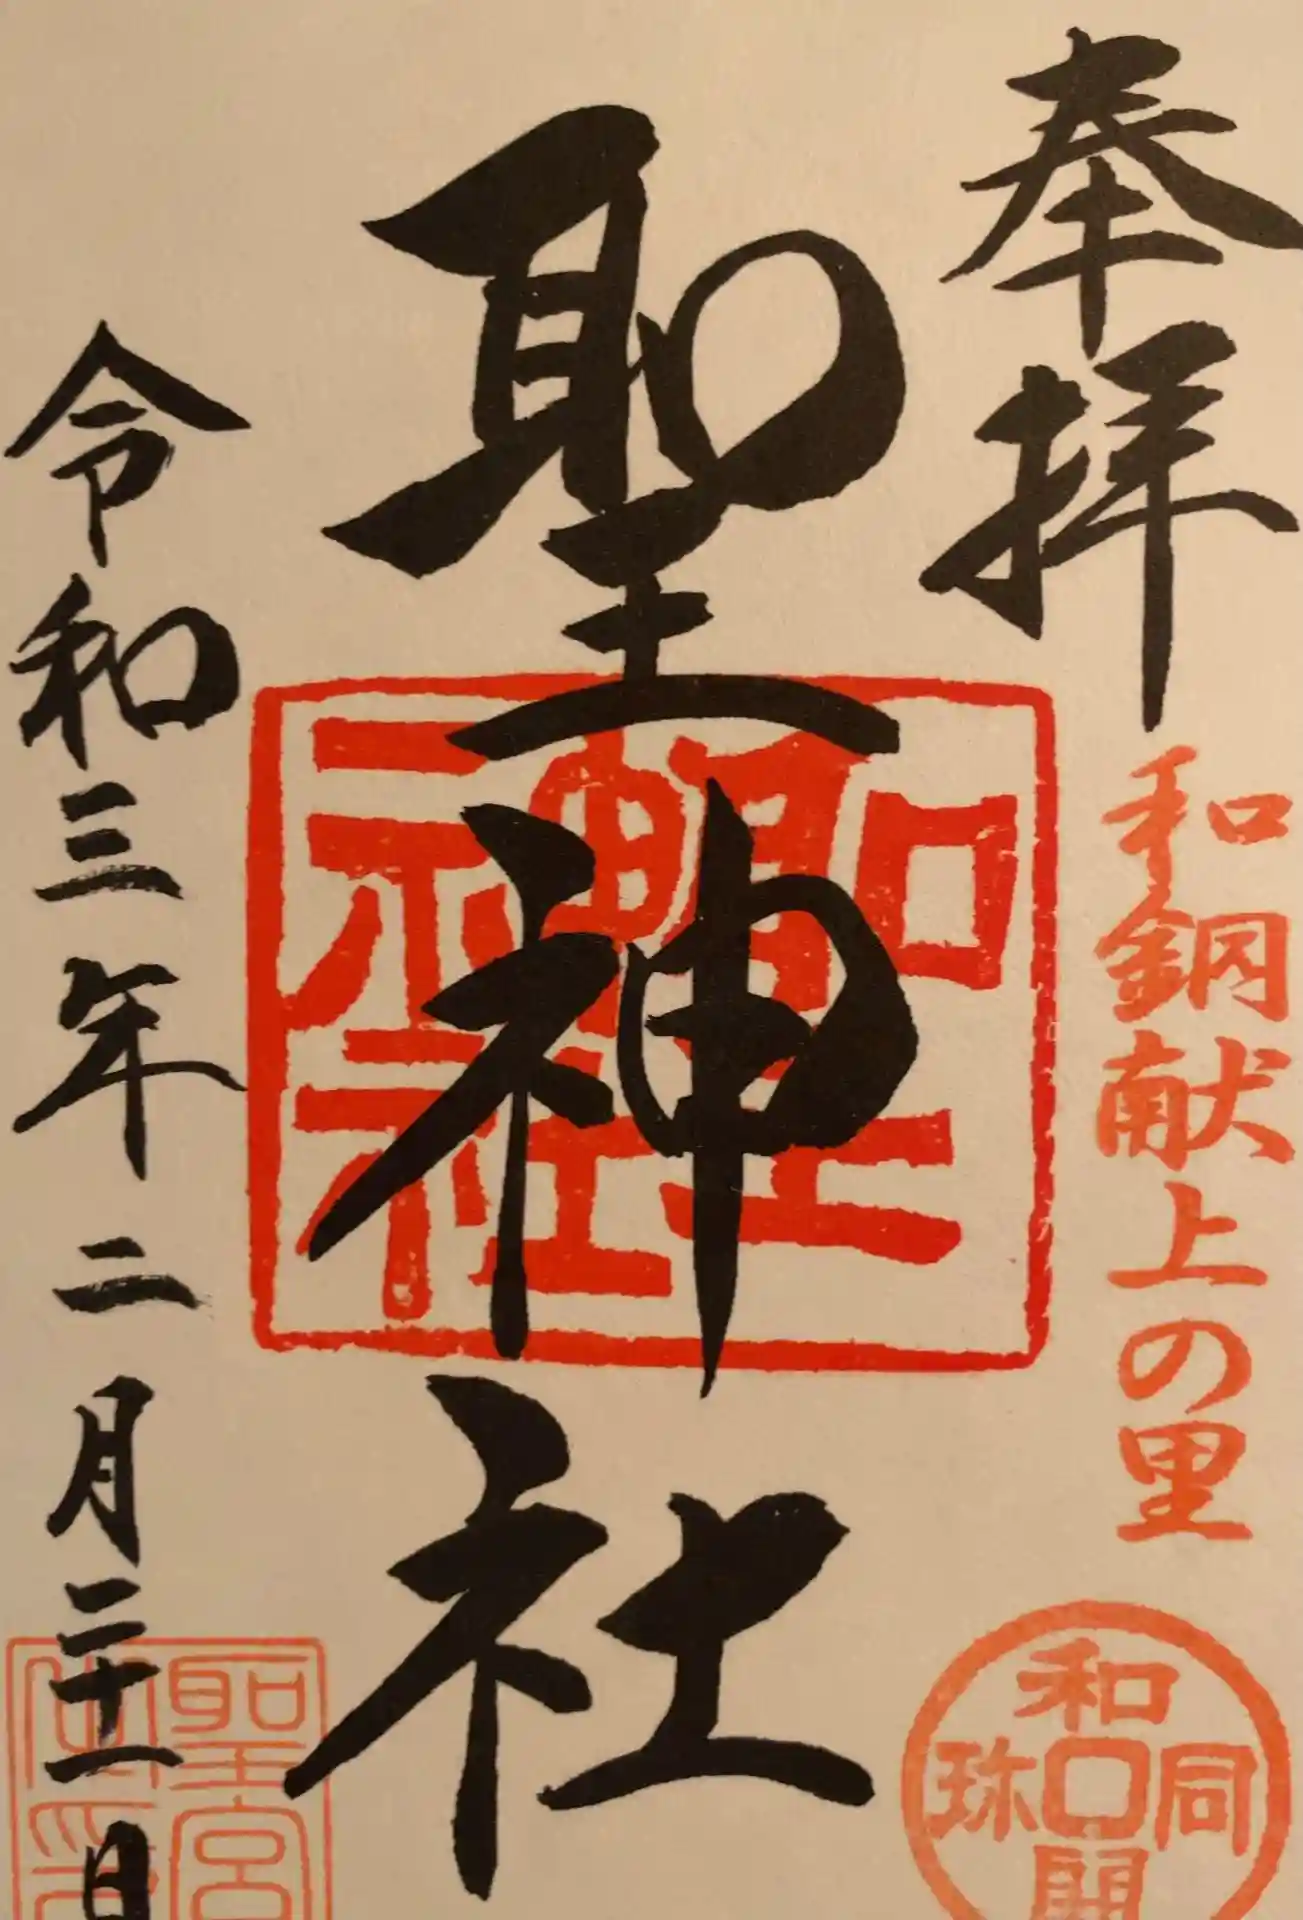 奉拝
和銅献上の里
和同開珎
聖神社
聖神社
令和三年二月二十一日
聖宮